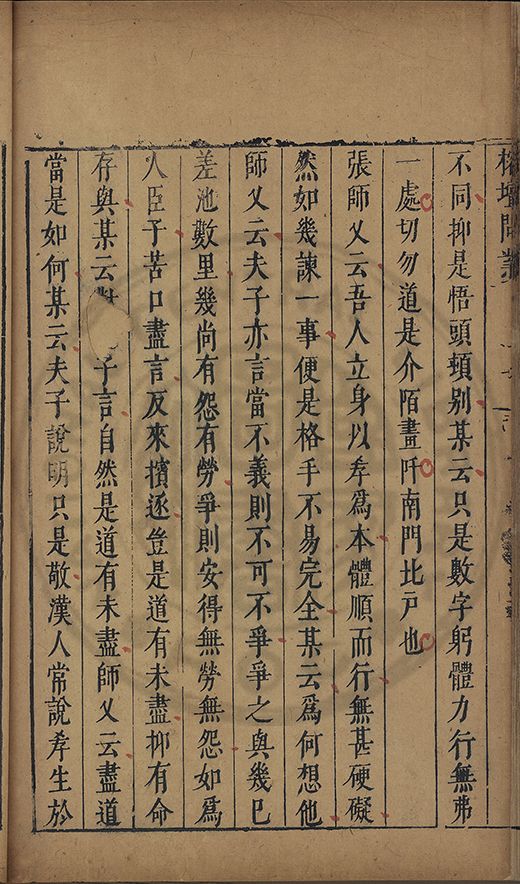 榕壇問業
不同抑是悟頭頓别某云只是數字躬體力行無弗
一處切勿道是介陌畫阡南門北戸也
張師乂云吾人立身以孝爲本體順而行無甚硬礙
然如幾諫一事便是格手不易完全某云爲何想他
師乂云夫子亦言當不義則不可不爭爭之與幾已
差池數里幾尚有怨有勞爭則安得無勞無怨如爲
人臣子苦口盡言反來擯逐豈是道有未盡抑有命
存與某云 子言自然是道有未盡師乂云盡道
當是如何某云夫子說明只是敬漢人常說孝生於